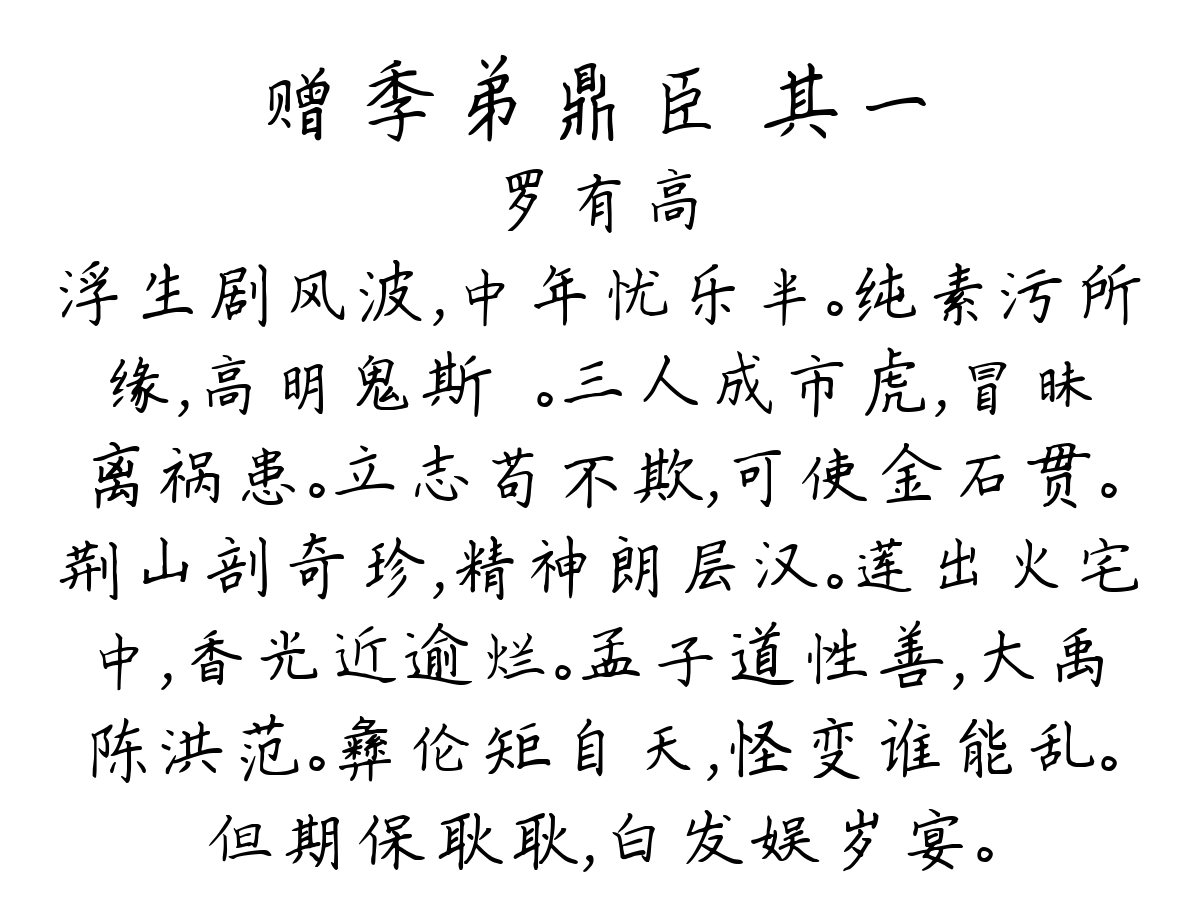 赠季弟鼎臣 其一
罗有高
浮生剧风波,中年忧乐半。纯素污所
缘,高明鬼斯 。三人成市虎,冒昧
离祸患。立志苟不欺,可使金石贯。
荆山剖奇珍,精神朗层汉。莲出火宅
中,香光近逾烂。孟子道性善,大禹
陈洪范。彝伦矩自天,怪变谁能乱。
但期保耿耿,白发娱岁宴。